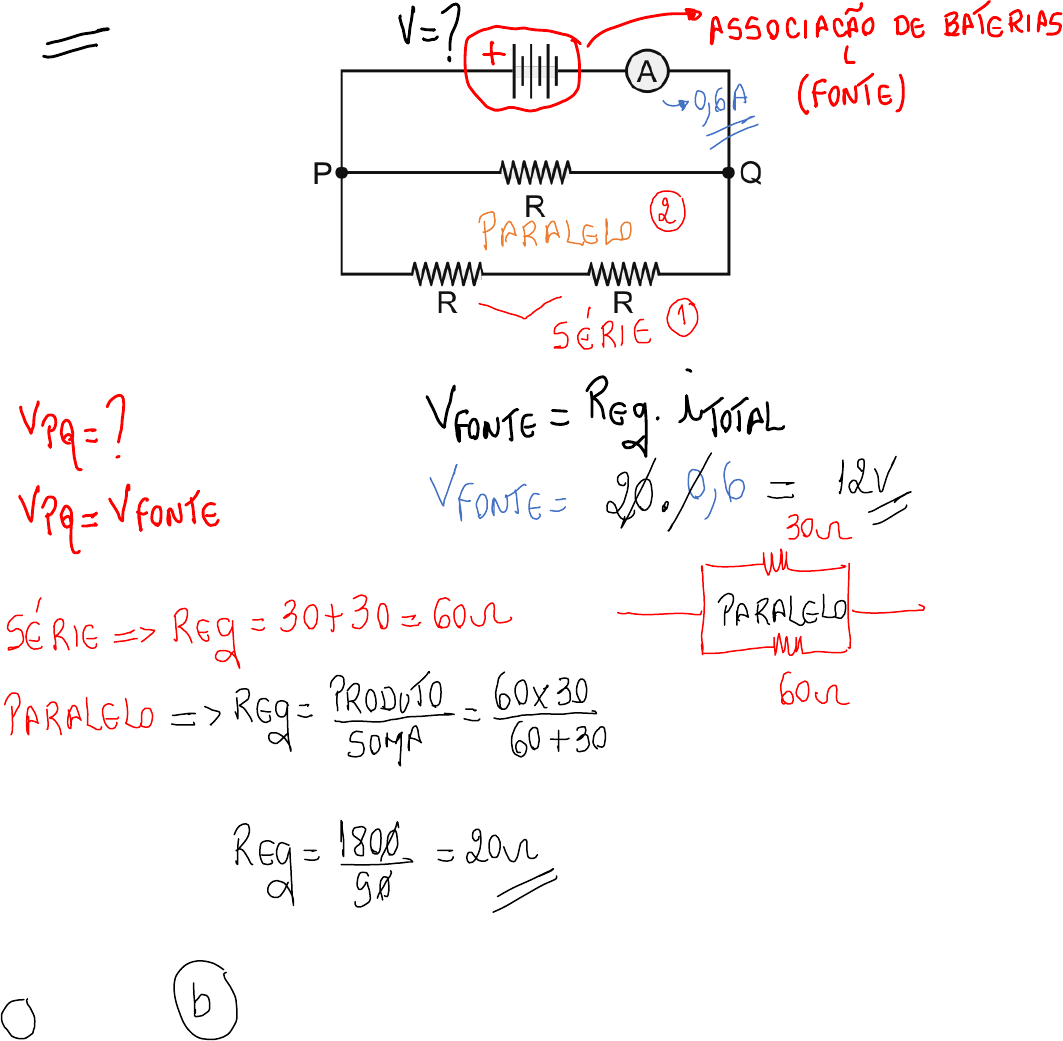 V=?
+
ASSOCIAÇÃO DE BATERIAS
(FONTE)
A
0,6A
P
Q
R
PARALELO 2
R
R
SÉRIE 1
VPQ=?
VFONTE = REq. iTOTAL
VPQ=VFONTE
VFONTE= 20.0,6 = 12V
30Ω
SÉRIE => REq = 30+30=60Ω
PARALELO
60Ω
PARALELO => REq= PRODUTO/SOMA = 60x30/60+30
REq= 1800/90 = 20Ω
b